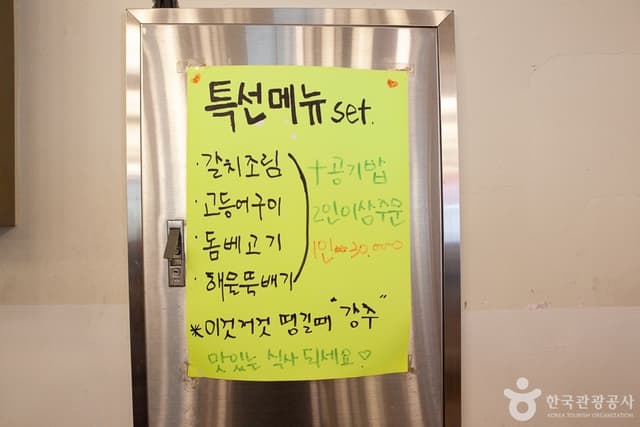 특선메뉴 set.
· 갈치조림
· 고등어구이
· 돔베고기
· 해물뚝배기
+공기밥
2인이상주문
1인 30.000
※이것저것 땡길때 "강추"
맛있는 식사 되세요♡
한국관광공사
KOREA TOURISM ORGANIZATION